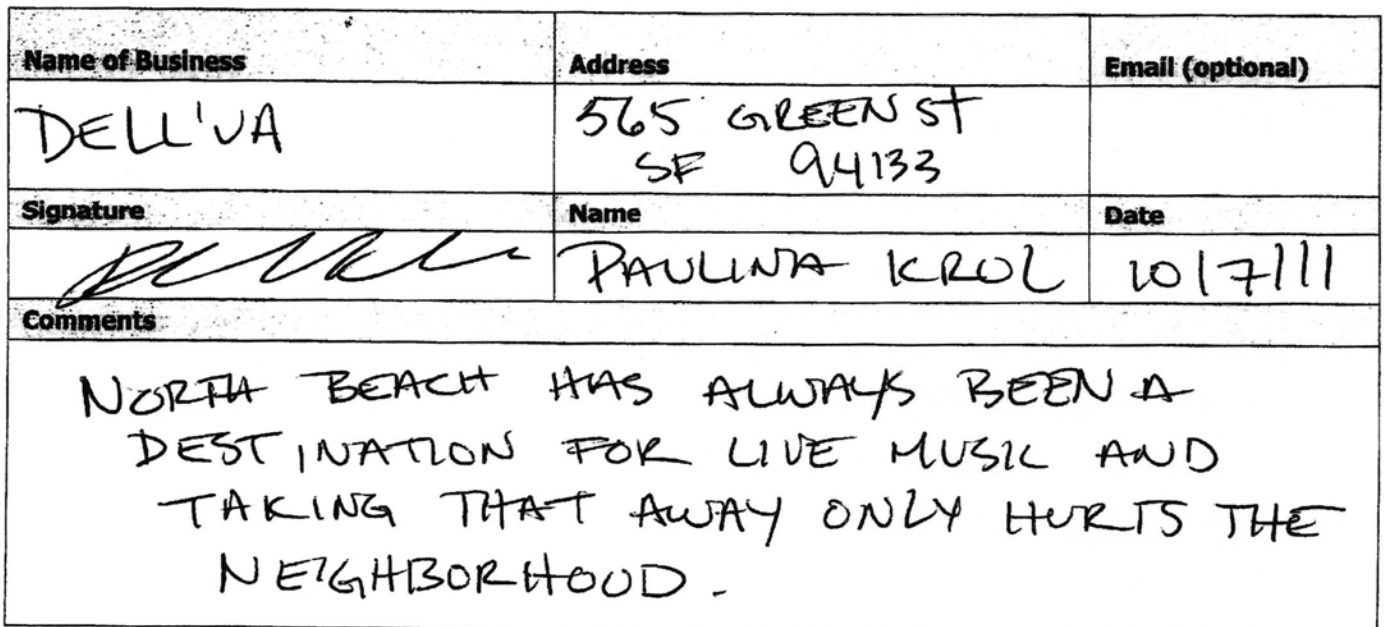 Name of Business Address Email (optional)
DELL'UVA
565 GREEN ST
SF 94133
Signature Name Date
PAULINA KROL 10/7/11
Comments
NORTH BEACH HAS ALWAYS BEEN A
DESTINATION FOR LIVE MUSIC AND
TAKING THAT AWAY ONLY HURTS THE
NEIGHBORHOOD.